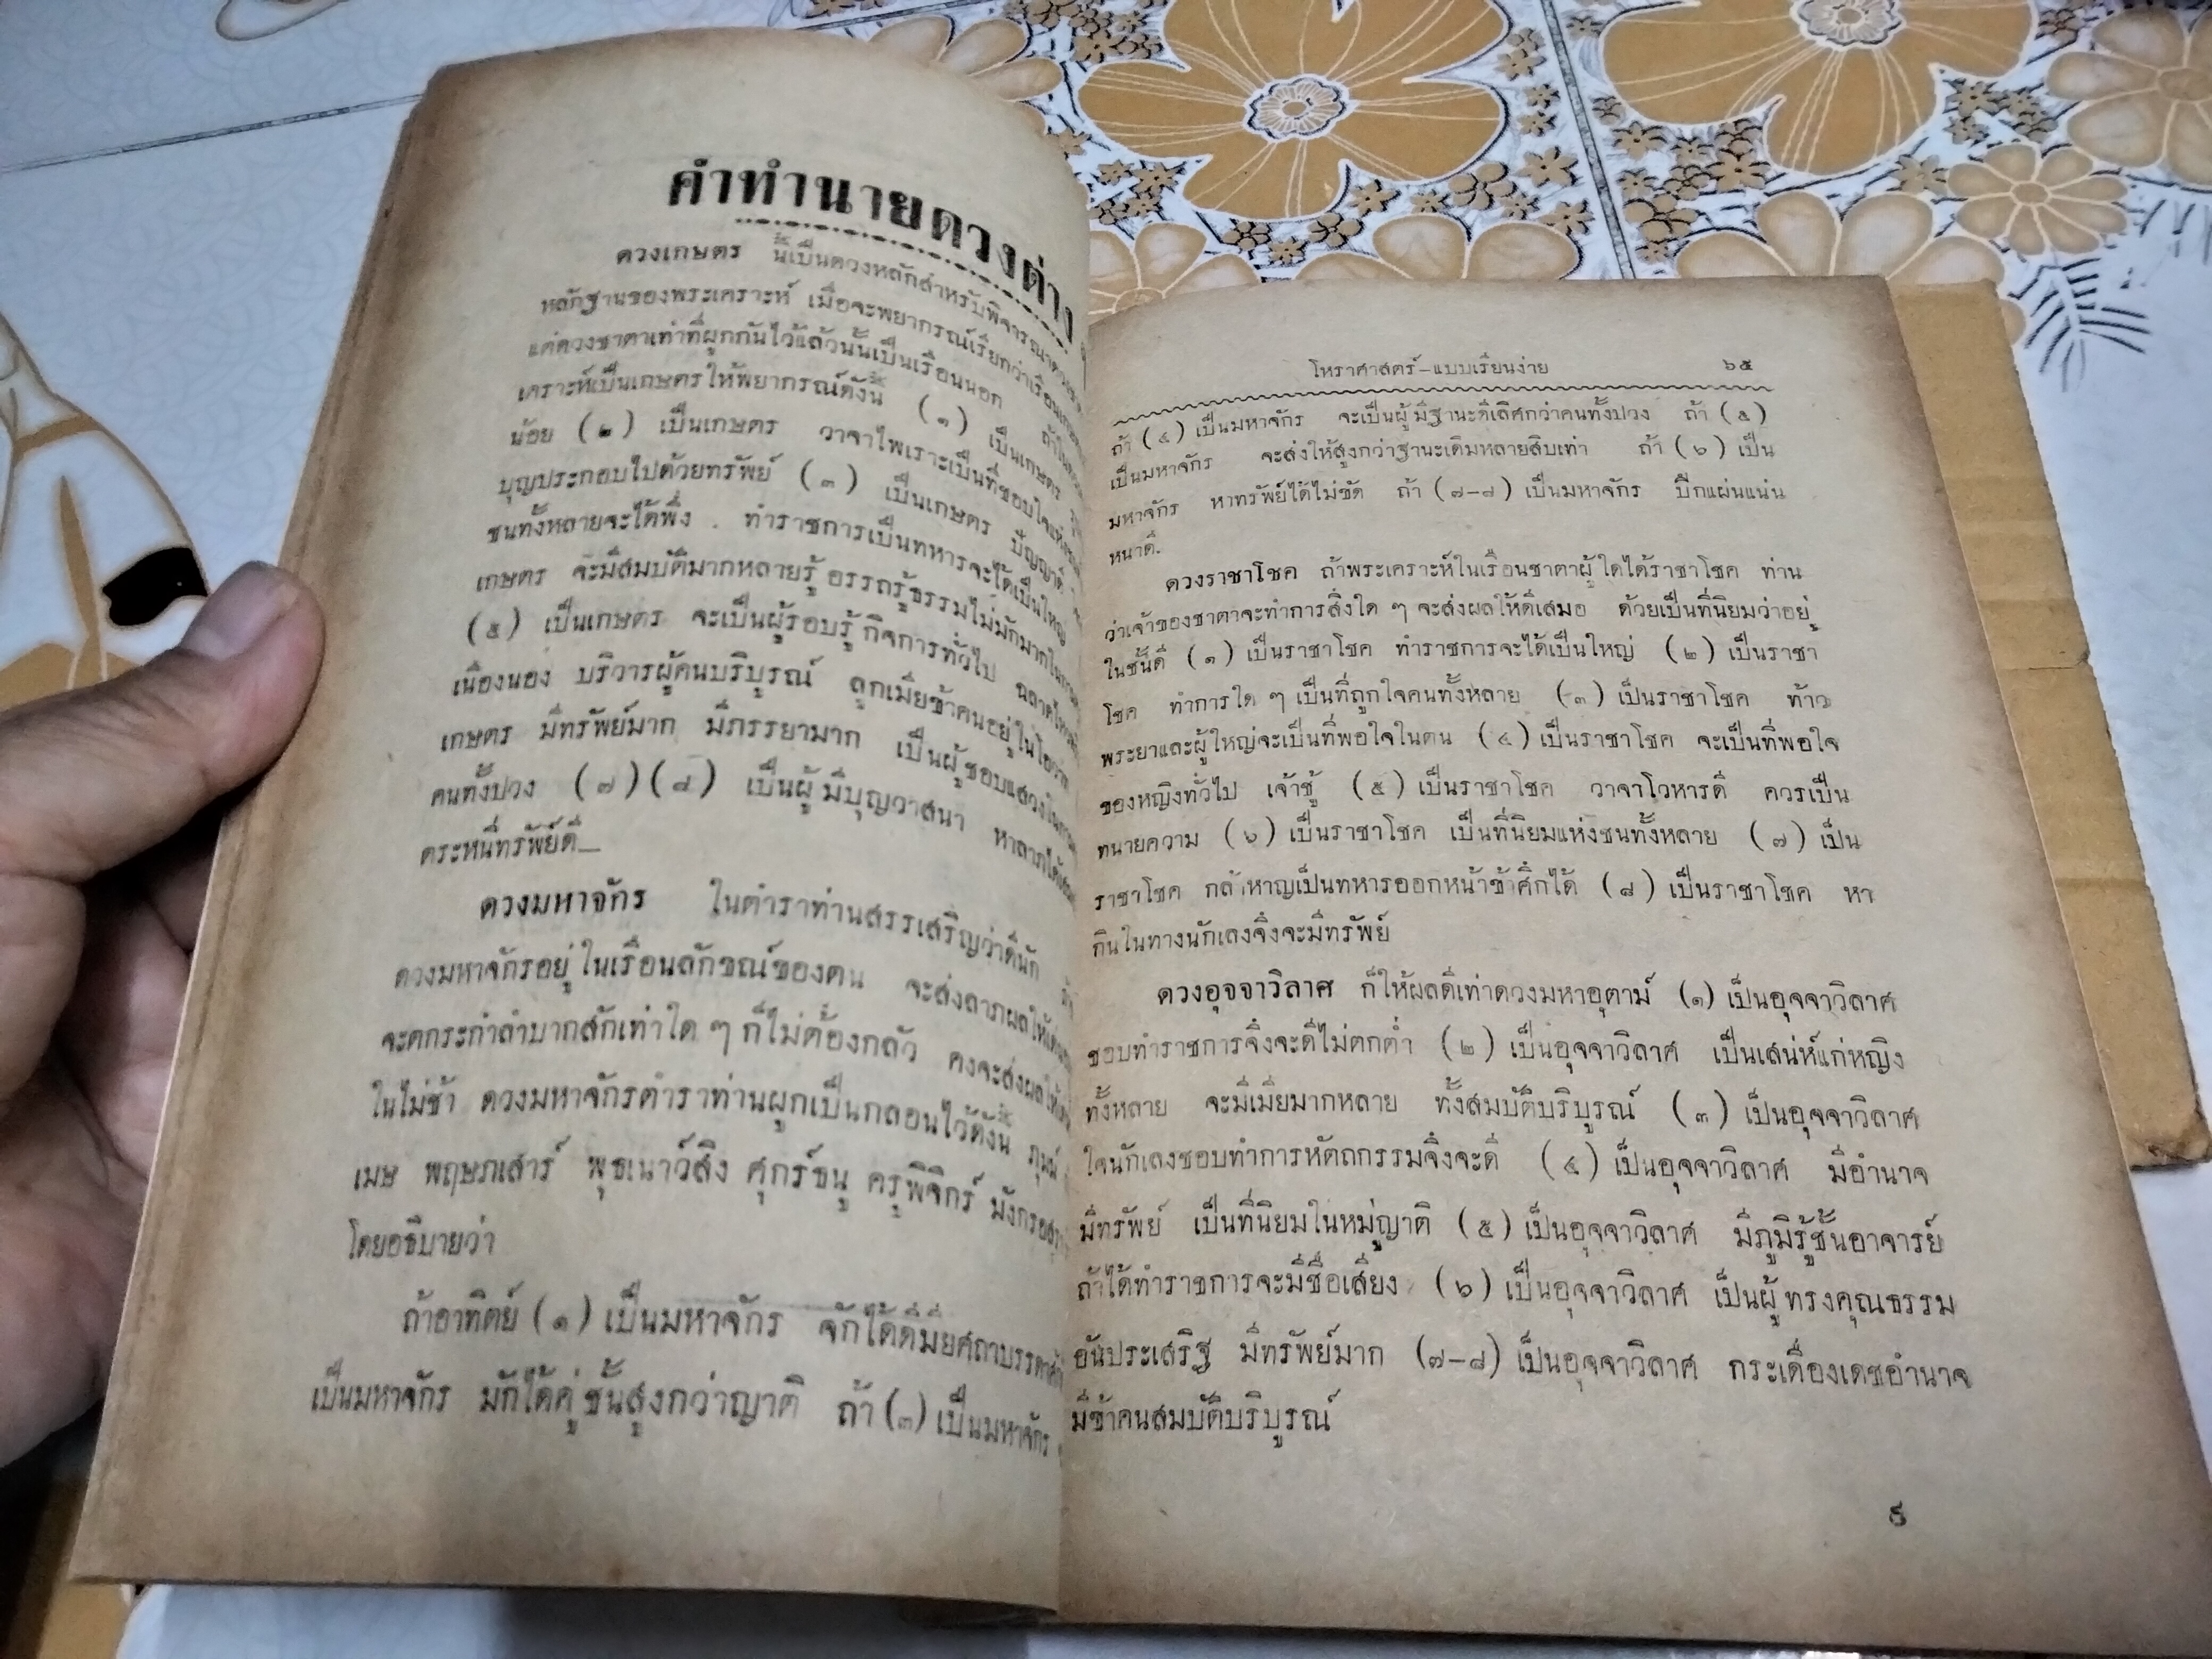 คำทำนายดวงต่าง
ดวงเกษตร นี้เป็นดวงหลักสำหรับพิจารณา
หลักฐานของพระเคราะห์ เมื่อจะพยากรณ์เรียกว่าเรือนเกษตร
แต่ดวงชาตาเท่าที่ผูกกันไว้แล้วนั้นเป็นเรือนนอก
เคราะห์เป็นเกษตรให้พยากรณ์ดังนี้ (๑) เป็นเกษตร
น้อย (๒) เป็นเกษตร วาจาไพเราะเป็นที่ชอบใจแห่ง
บุญประกอบไปด้วยทรัพย์ (๓) เป็นเกษตร ปัญญาดี
ชนทั้งหลายจะได้พึ่ง ทำราชการเป็นทหารจะได้เป็นใหญ่
เกษตร จะมีสมบัติมากหลายรู้อรรถรู้ธรรมไม่มักมากใน
(๕) เป็นเกษตร จะเป็นผู้รอบรู้กิจการทั่วไป ฉลาด
เนืองนอง บริวารผู้คนบริบูรณ์ ลูกเมียข้าคนอยู่ในโอวาท
เกษตร มีทรัพย์มาก มีภรรยามาก เป็นผู้ชอบแสวงในกาม
คนทั้งปวง (๗)(๘) เป็นผู้มีบุญวาสนา หาลาภได้
ตระหนี่ทรัพย์ดี—
ดวงมหาจักร ในตำราท่านสรรเสริญว่าดีนัก
ดวงมหาจักรอยู่ในเรือนลักขณ์ของตน จะส่งลาภผลให้
จะตกระกำลำบากสักเท่าใด ๆ ก็ไม่ต้องกลัว คงจะส่งผลให้
ในไม่ช้า ดวงมหาจักรตำราท่านผูกเป็นกลอนไว้ดังนี้ ภุมม์
เมษ พฤษภเสาร์ พุธเนาว์สิง ศุกร์ธนู ครูพิจิกร์ มังกร
โดยอธิบายว่า
ถ้าอาทิตย์ (๑) เป็นมหาจักร จักได้ดีมียศถาบรรดาศักดิ์
เป็นมหาจักร มักได้คู่ชั้นสูงกว่าญาติ ถ้า (๓) เป็นมหาจักร
โหราศาสตร์–แบบเรียนง่าย ๖๕
ถ้า (๔) เป็นมหาจักร จะเป็นผู้มีฐานะดีเลิศกว่าคนทั้งปวง ถ้า (๕)
เป็นมหาจักร จะส่งให้สูงกว่าฐานะเดิมหลายสิบเท่า ถ้า (๖) เป็น
มหาจักร หาทรัพย์ได้ไม่ขัด ถ้า (๗–๘) เป็นมหาจักร ปึกแผ่นแน่น
หนาดี.
ดวงราชาโชค ถ้าพระเคราะห์ในเรือนชาตาผู้ใดได้ราชาโชค ท่าน
ว่าเจ้าของชาตาจะทำการสิ่งใด ๆ จะส่งผลให้ดีเสมอ ด้วยเป็นที่นิยมว่าอยู่
ในชั้นดี (๑) เป็นราชาโชค ทำราชการจะได้เป็นใหญ่ (๒) เป็นราชา
โชค ทำการใด ๆ เป็นที่ถูกใจคนทั้งหลาย (๓) เป็นราชาโชค ท้าว
พระยาและผู้ใหญ่จะเป็นที่พอใจในตน (๔) เป็นราชาโชค จะเป็นที่พอใจ
ของหญิงทั่วไป เจ้าชู้ (๕) เป็นราชาโชค วาจาโวหารดี ควรเป็น
ทนายความ (๖) เป็นราชาโชค เป็นที่นิยมแห่งชนทั้งหลาย (๗) เป็น
ราชาโชค กล้าหาญเป็นทหารออกหน้าข้าศึกได้ (๘) เป็นราชาโชค หา
กินในทางนักเลงจึงจะมีทรัพย์
ดวงอุจจาวิลาศ ก็ให้ผลดีเท่าดวงมหาอุตาม์ (๑) เป็นอุจจาวิลาศ
ชอบทำราชการจึงจะดีไม่ตกต่ำ (๒) เป็นอุจจาวิลาศ เป็นเสน่ห์แก่หญิง
ทั้งหลาย จะมีเมียมากหลาย ทั้งสมบัติบริบูรณ์ (๓) เป็นอุจจาวิลาศ
ใจนักเลงชอบทำการหัตถกรรมจึงจะดี (๔) เป็นอุจจาวิลาศ มีอำนาจ
มีทรัพย์ เป็นที่นิยมในหมู่ญาติ (๕) เป็นอุจจาวิลาศ มีภูมิรู้ชั้นอาจารย์
ถ้าได้ทำราชการจะมีชื่อเสียง (๖) เป็นอุจจาวิลาศ เป็นผู้ทรงคุณธรรม
อันประเสริฐ มีทรัพย์มาก (๗–๘) เป็นอุจจาวิลาศ กระเดื่องเดชอำนาจ
มีข้าคนสมบัติบริบูรณ์